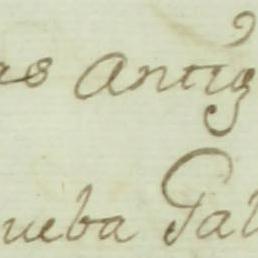 as Antig
ueba Gal